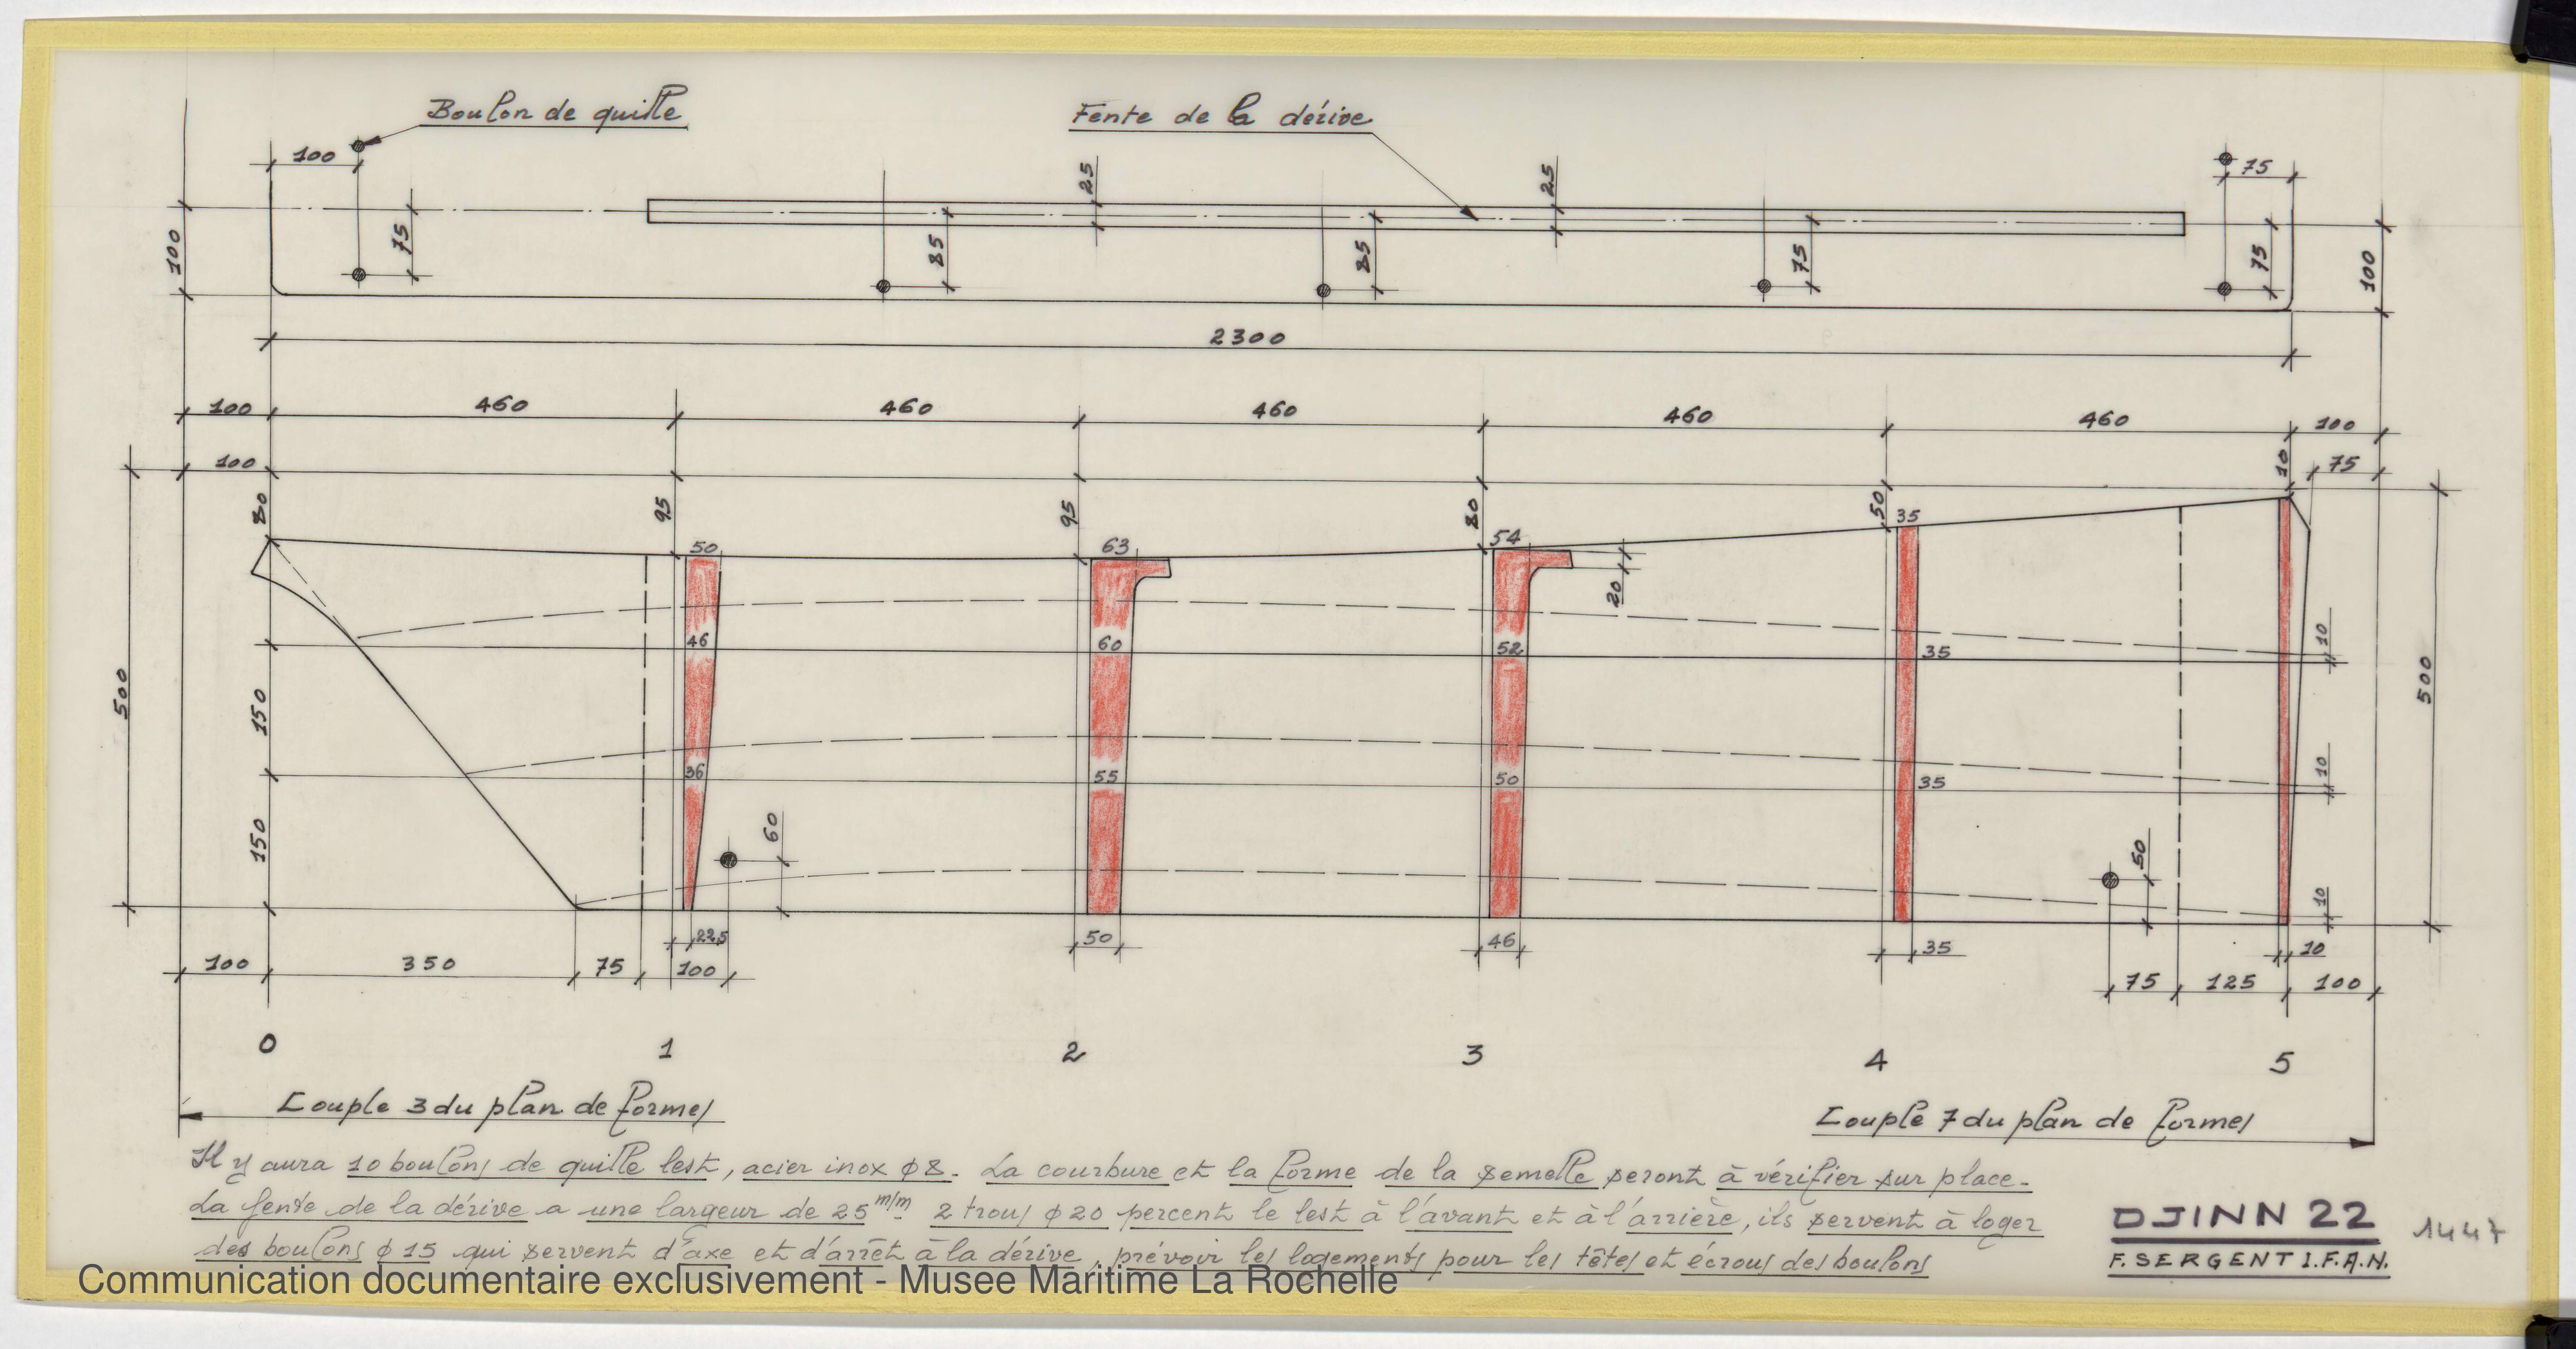 Boulon de quille
Fente de la dérive
100
75
25
25
100
75
85
85
75
75
100
2300
100
460
460
460
460
460
100
100
75
80
95
95
80
50
10
50
63
54
35
20
46
60
52
35
10
500
150
500
36
55
50
35
10
150
60
50
10
22,5
50
46
35
10
100
350
75
100
75
125
100
0
1
2
3
4
5
Couple 3 du plan de formes
Couple 7 du plan de formes
Il y aura 10 boulons de quille lest, acier inox φ8. La courbure et la forme de la semelle seront à vérifier sur place.
La fente de la dérive a une largeur de 25 m/m. 2 trous φ20 percent le lest à l'avant et à l'arrière, ils servent à loger
des boulons φ15 qui servent d'axe et d'arrêt à la dérive, prévoir les logements pour les têtes et écrous des boulons
DJINN 22
F. SERGENT I.F.A.N.
1447
Communication documentaire exclusivement - Musee Maritime La Rochelle